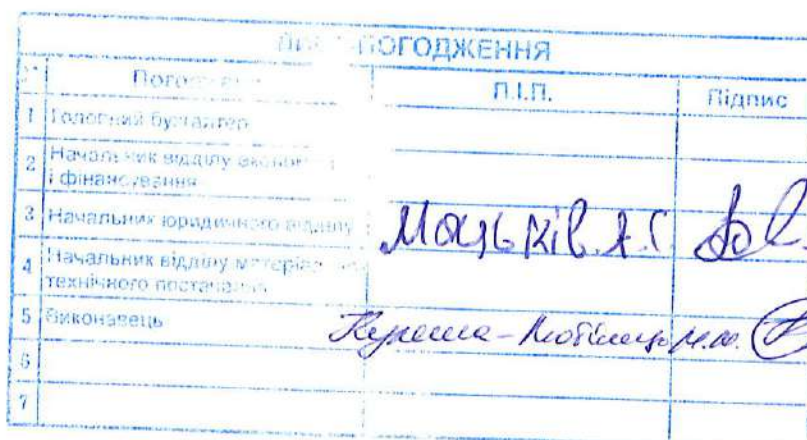 ЛИСТ ПОГОДЖЕННЯ
П.І.П. Підпис
1 Головний бухгалтер
2 Начальник відділу економіки
і фінансування
3 Начальник юридичного відділу Мацьків
4 Начальник відділу матеріально
технічного постачання
5 Виконавець
6
7